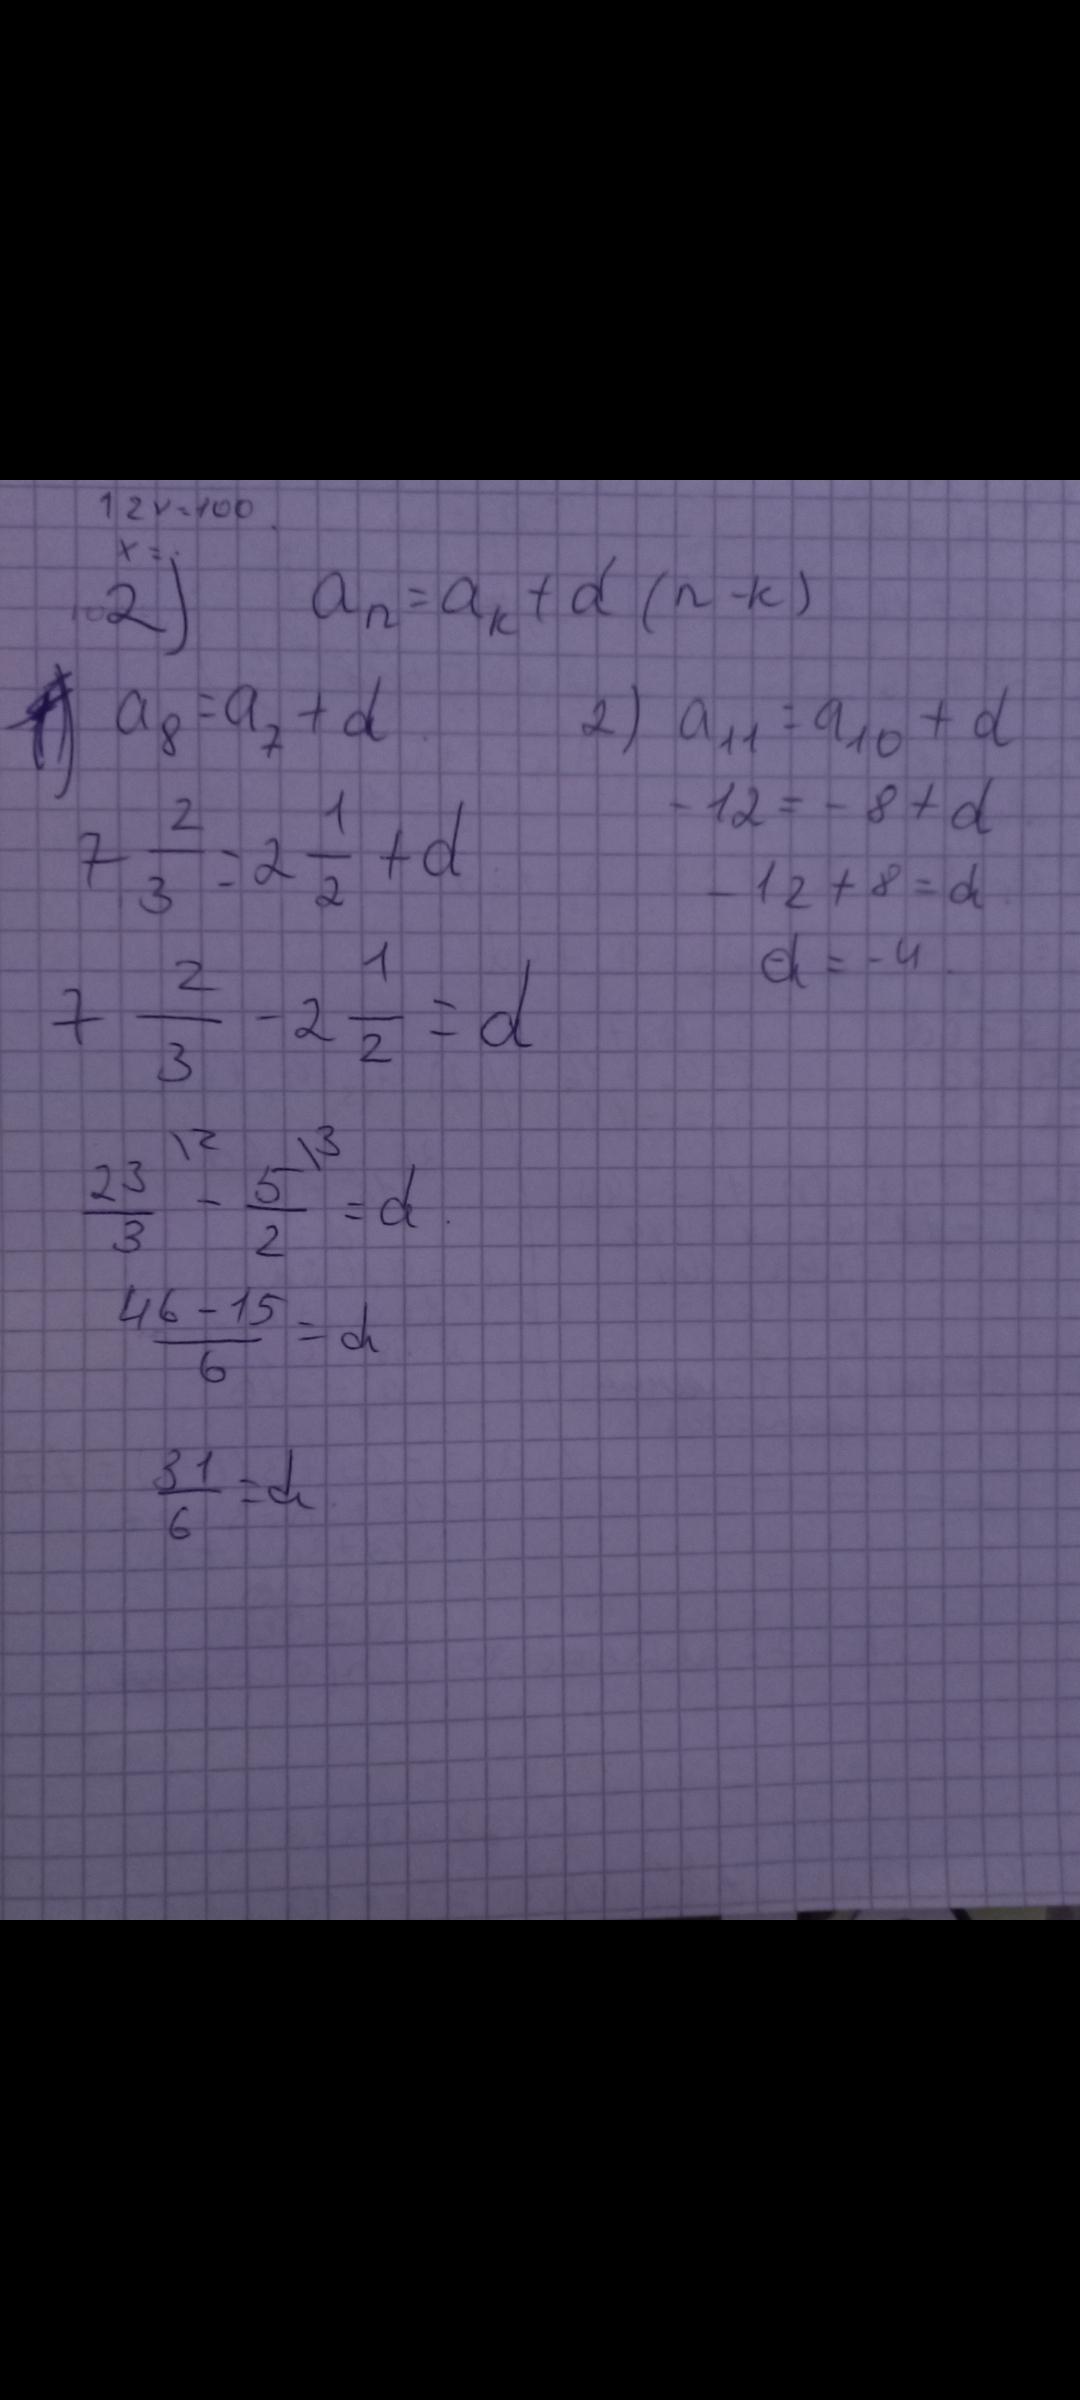 12x=100
x=
2) aₙ=aₖ+d(n-k)
1) a₈=a₇+d
7 2/3=2 1/2+d
7 2/3-2 1/2=d
23/3 \2 - 5/2 \3 =d.
46-15/6=d
31/6=d
2) a₁₁=a₁₀+d
-12=-8+d
-12+8=d
d=-4